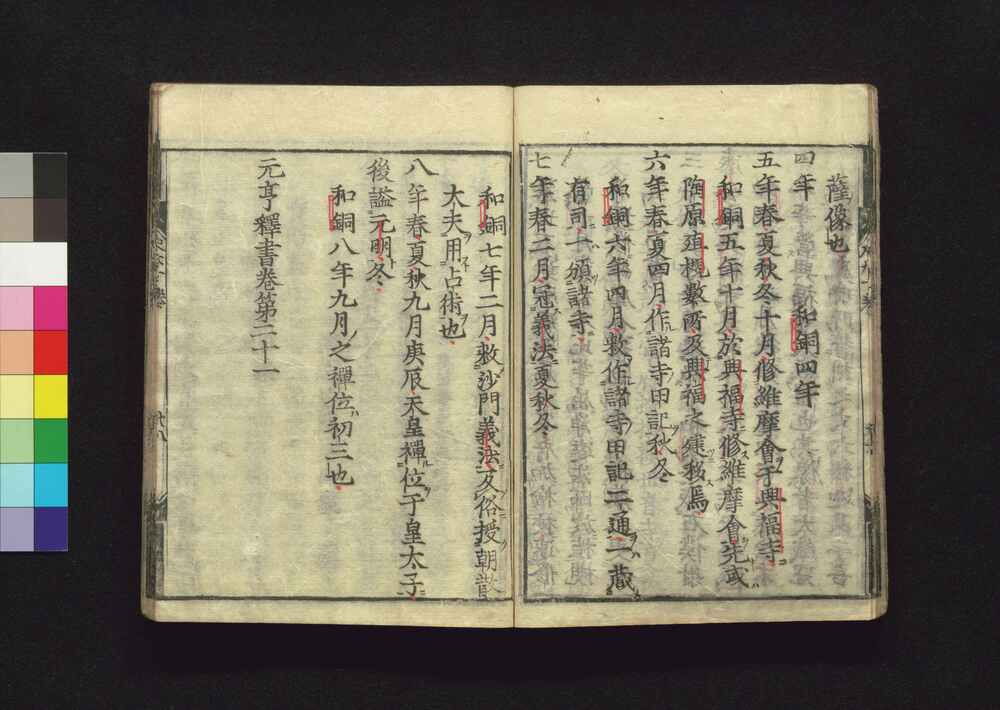 薩像也
四年
和銅四年
五年春夏秋冬十月修維摩會于興福寺
和銅五年十月於興福寺修維摩會先或
陶原殖槻數所及興福之建移焉
六年春夏四月作諸寺田記秋冬
和銅六年四月敕作諸寺田記二通一藏
有司一頒諸寺
七年春二月冠義法夏秋冬
和銅七年二月敕沙門義法反俗授朝散
太夫用占術也
八年春夏秋九月庚辰天皇禪位于皇太子
後謚元明冬
和銅八年九月之禪位初三也
元亨釋書卷第二十一